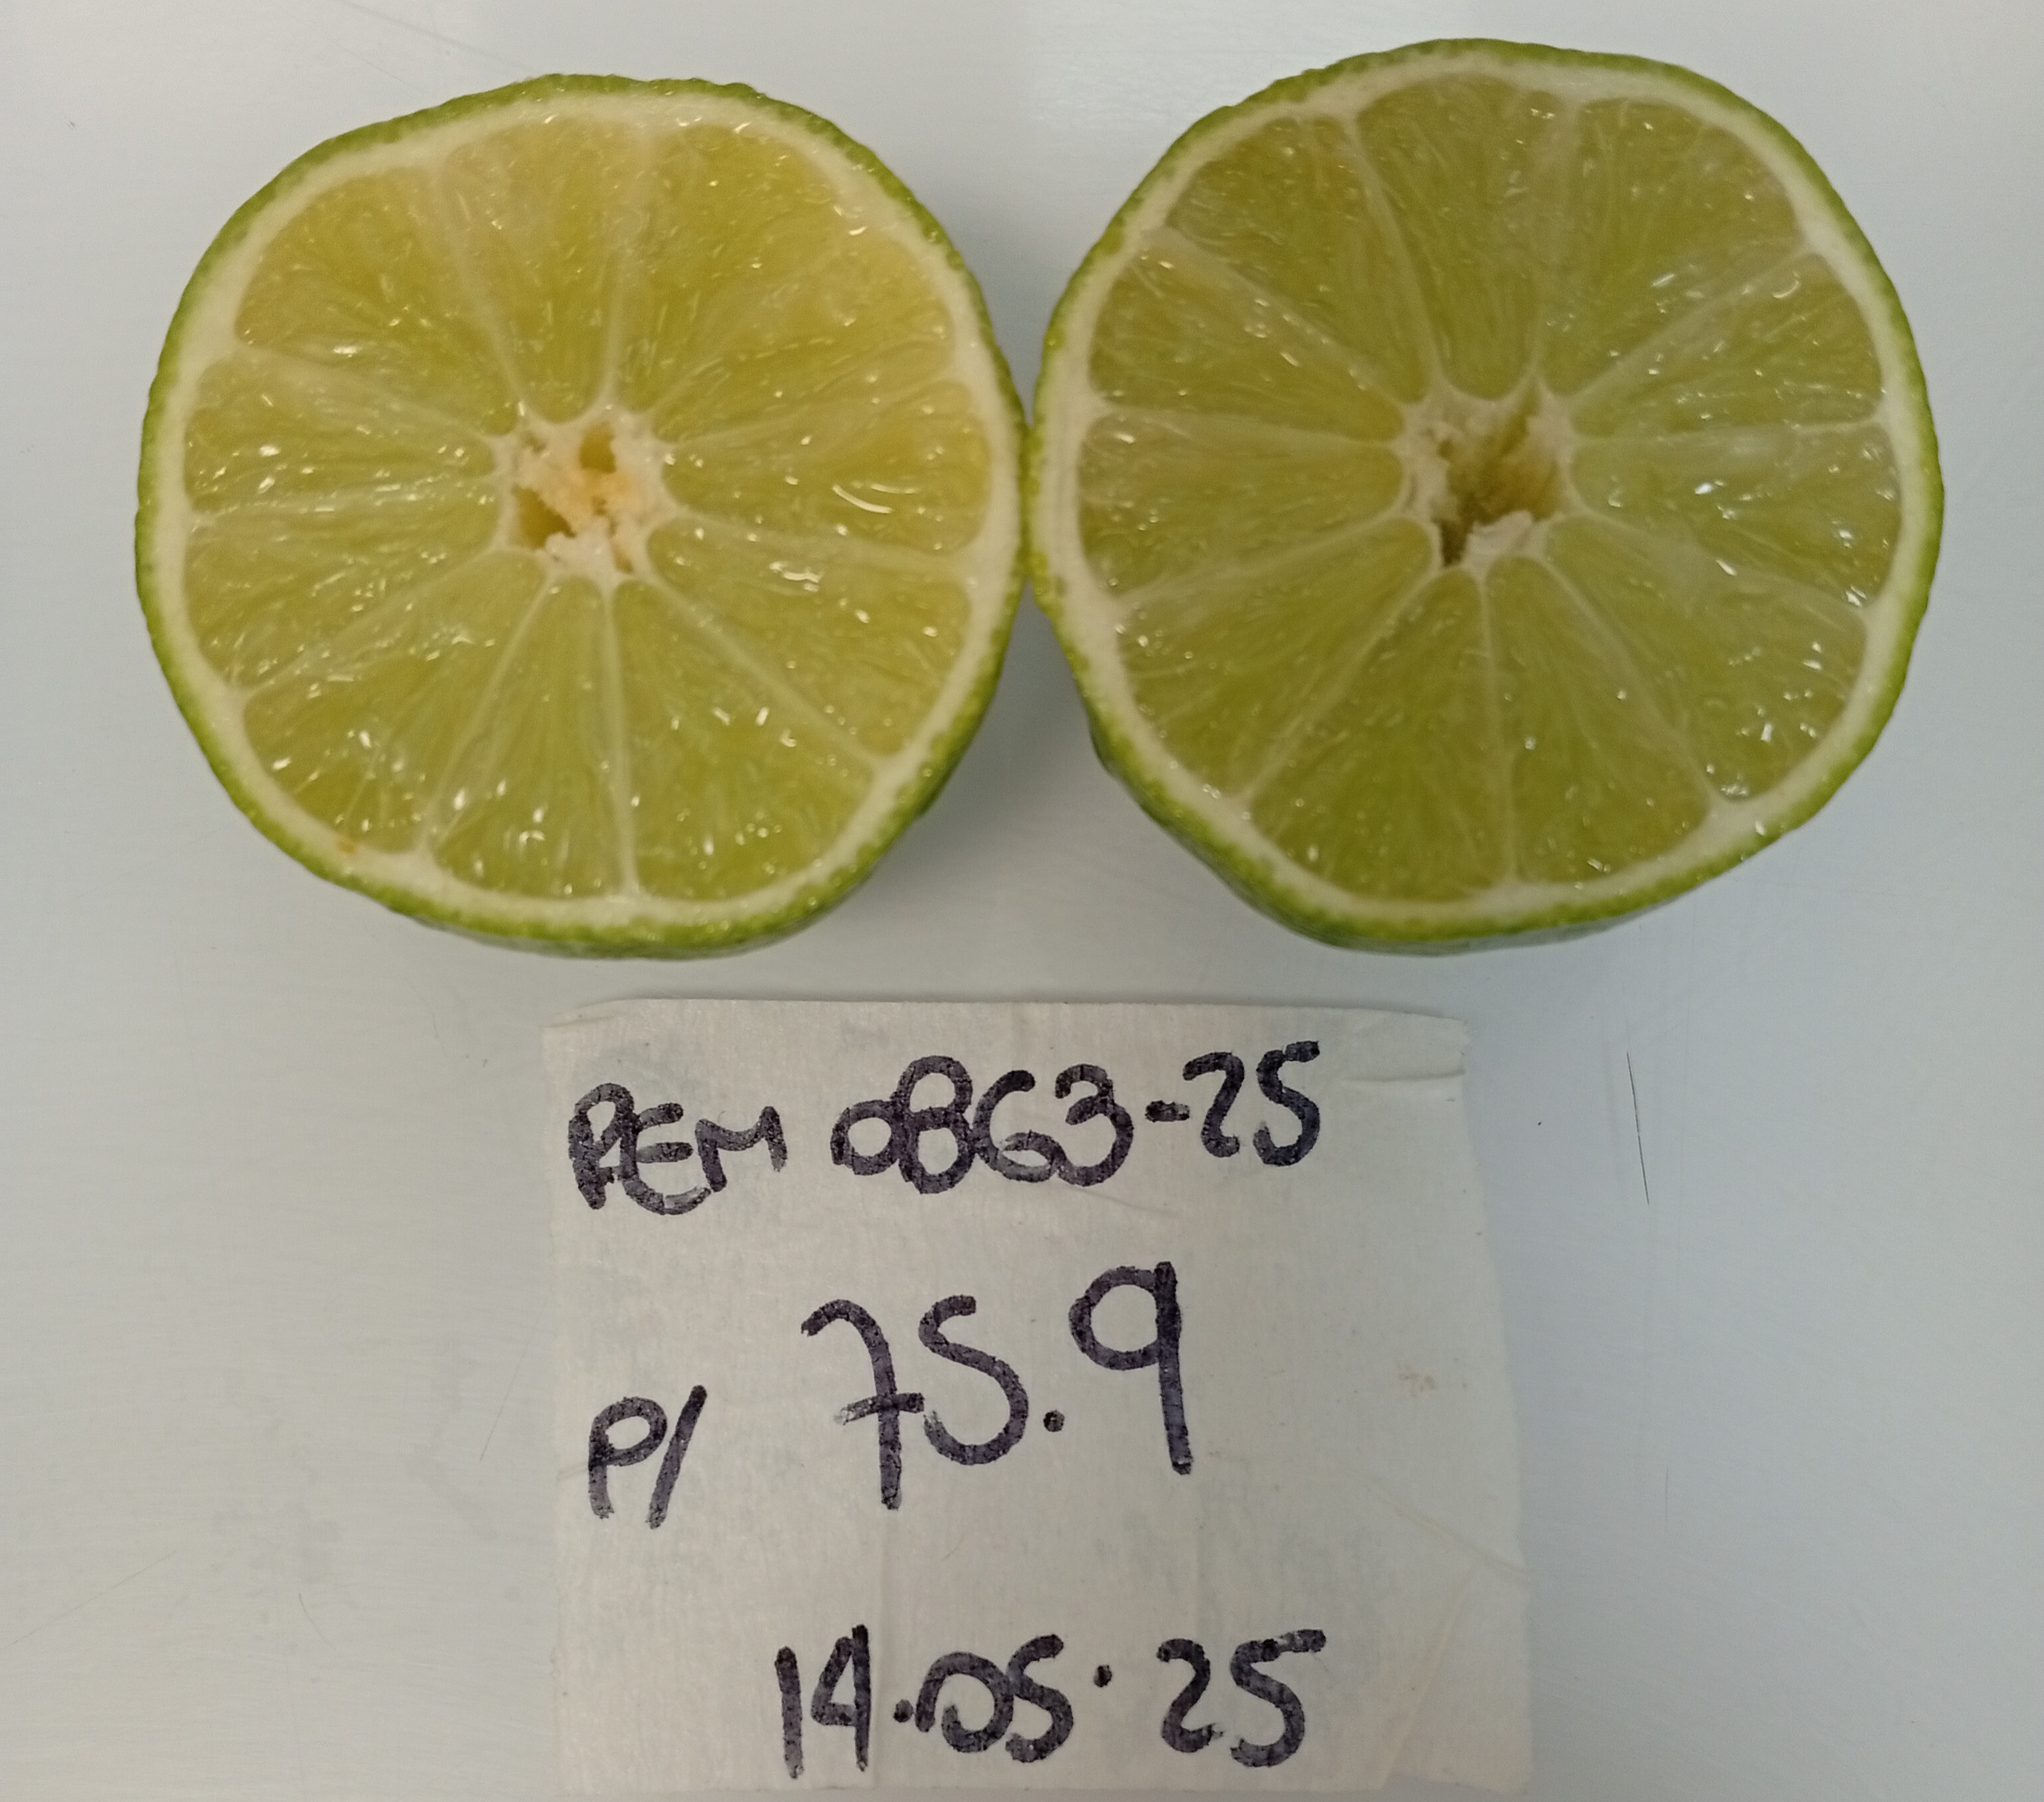 REM 0863-25
P/ 75.9
14.05.25